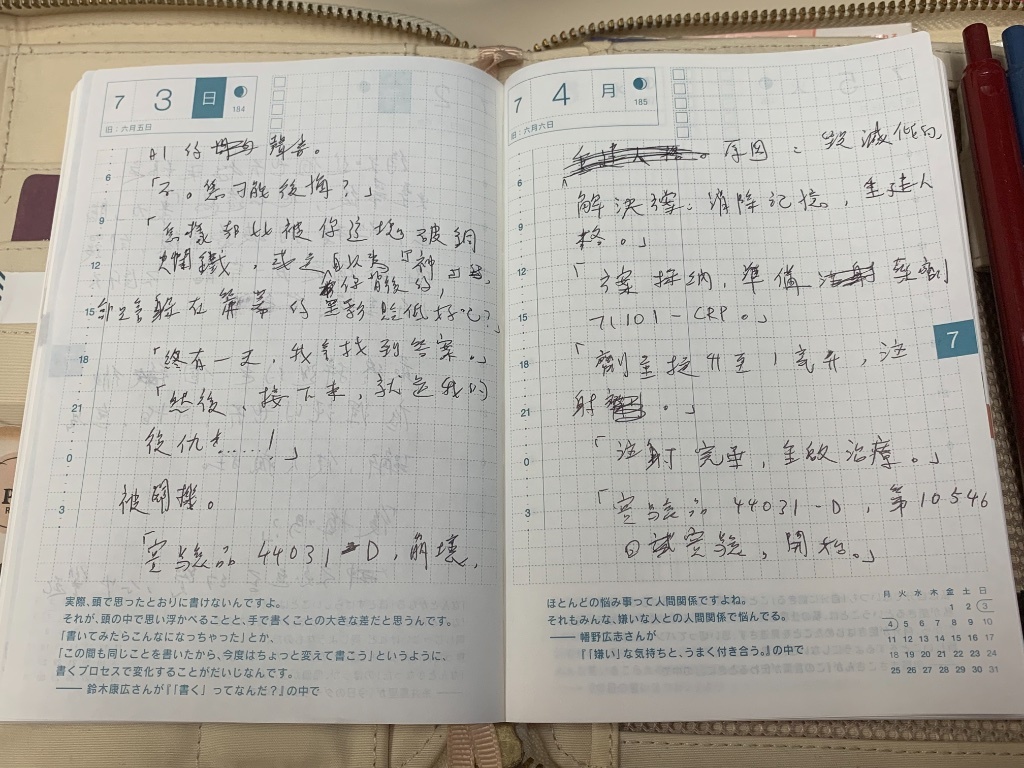 7 3 日 184
旧：六月五日
AI 的 聲音。
「不。您可能後悔？」
「怎樣都比被你這塊破銅
爛鐵，或是自以為『神』
你背後的，
躲在 的黑影 好吧？」
「終有一天，我會找到答案。」
「然後，接下來，就是我的
復仇……！」
被關機。
「實驗品 44031-D，崩壞，
6
9
12
15
18
21
0
3
実際、頭で思ったとおりに書けないんですよ。
それが、頭の中で思い浮かべることと、手で書くことの大きな差だと思うんです。
「書いてみたらこんなになっちゃった」とか、
「この間も同じことを書いたから、今度はちょっと変えて書こう」というように、
書くプロセスで変化することがだいじなんです。
―― 鈴木康広さんが『「書く」ってなんだ？』の中で
7 4 月 185
旧：六月六日
。原因：藥效減低的，
解決案：消除記憶，重建人
格。」
「方案採納，準備 藥劑
71101-CRP。」
「劑量提升至1毫升，注
射 。」
「注射完畢，重啟治療。」
「實驗品 44031-D，第10546
日 實驗，開始。」
6
9
12
15
18
21
0
3
7
ほとんどの悩み事って人間関係ですよね。
それもみんな、嫌いな人との人間関係で悩んでる。
―― 幡野広志さんが
『「嫌い」な気持ちと、うまく付き合う。』の中で
月 火 水 木 金 土 日
1 2 3
4 5 6 7 8 9 10
11 12 13 14 15 16 17
18 19 20 21 22 23 24
25 26 27 28 29 30 31